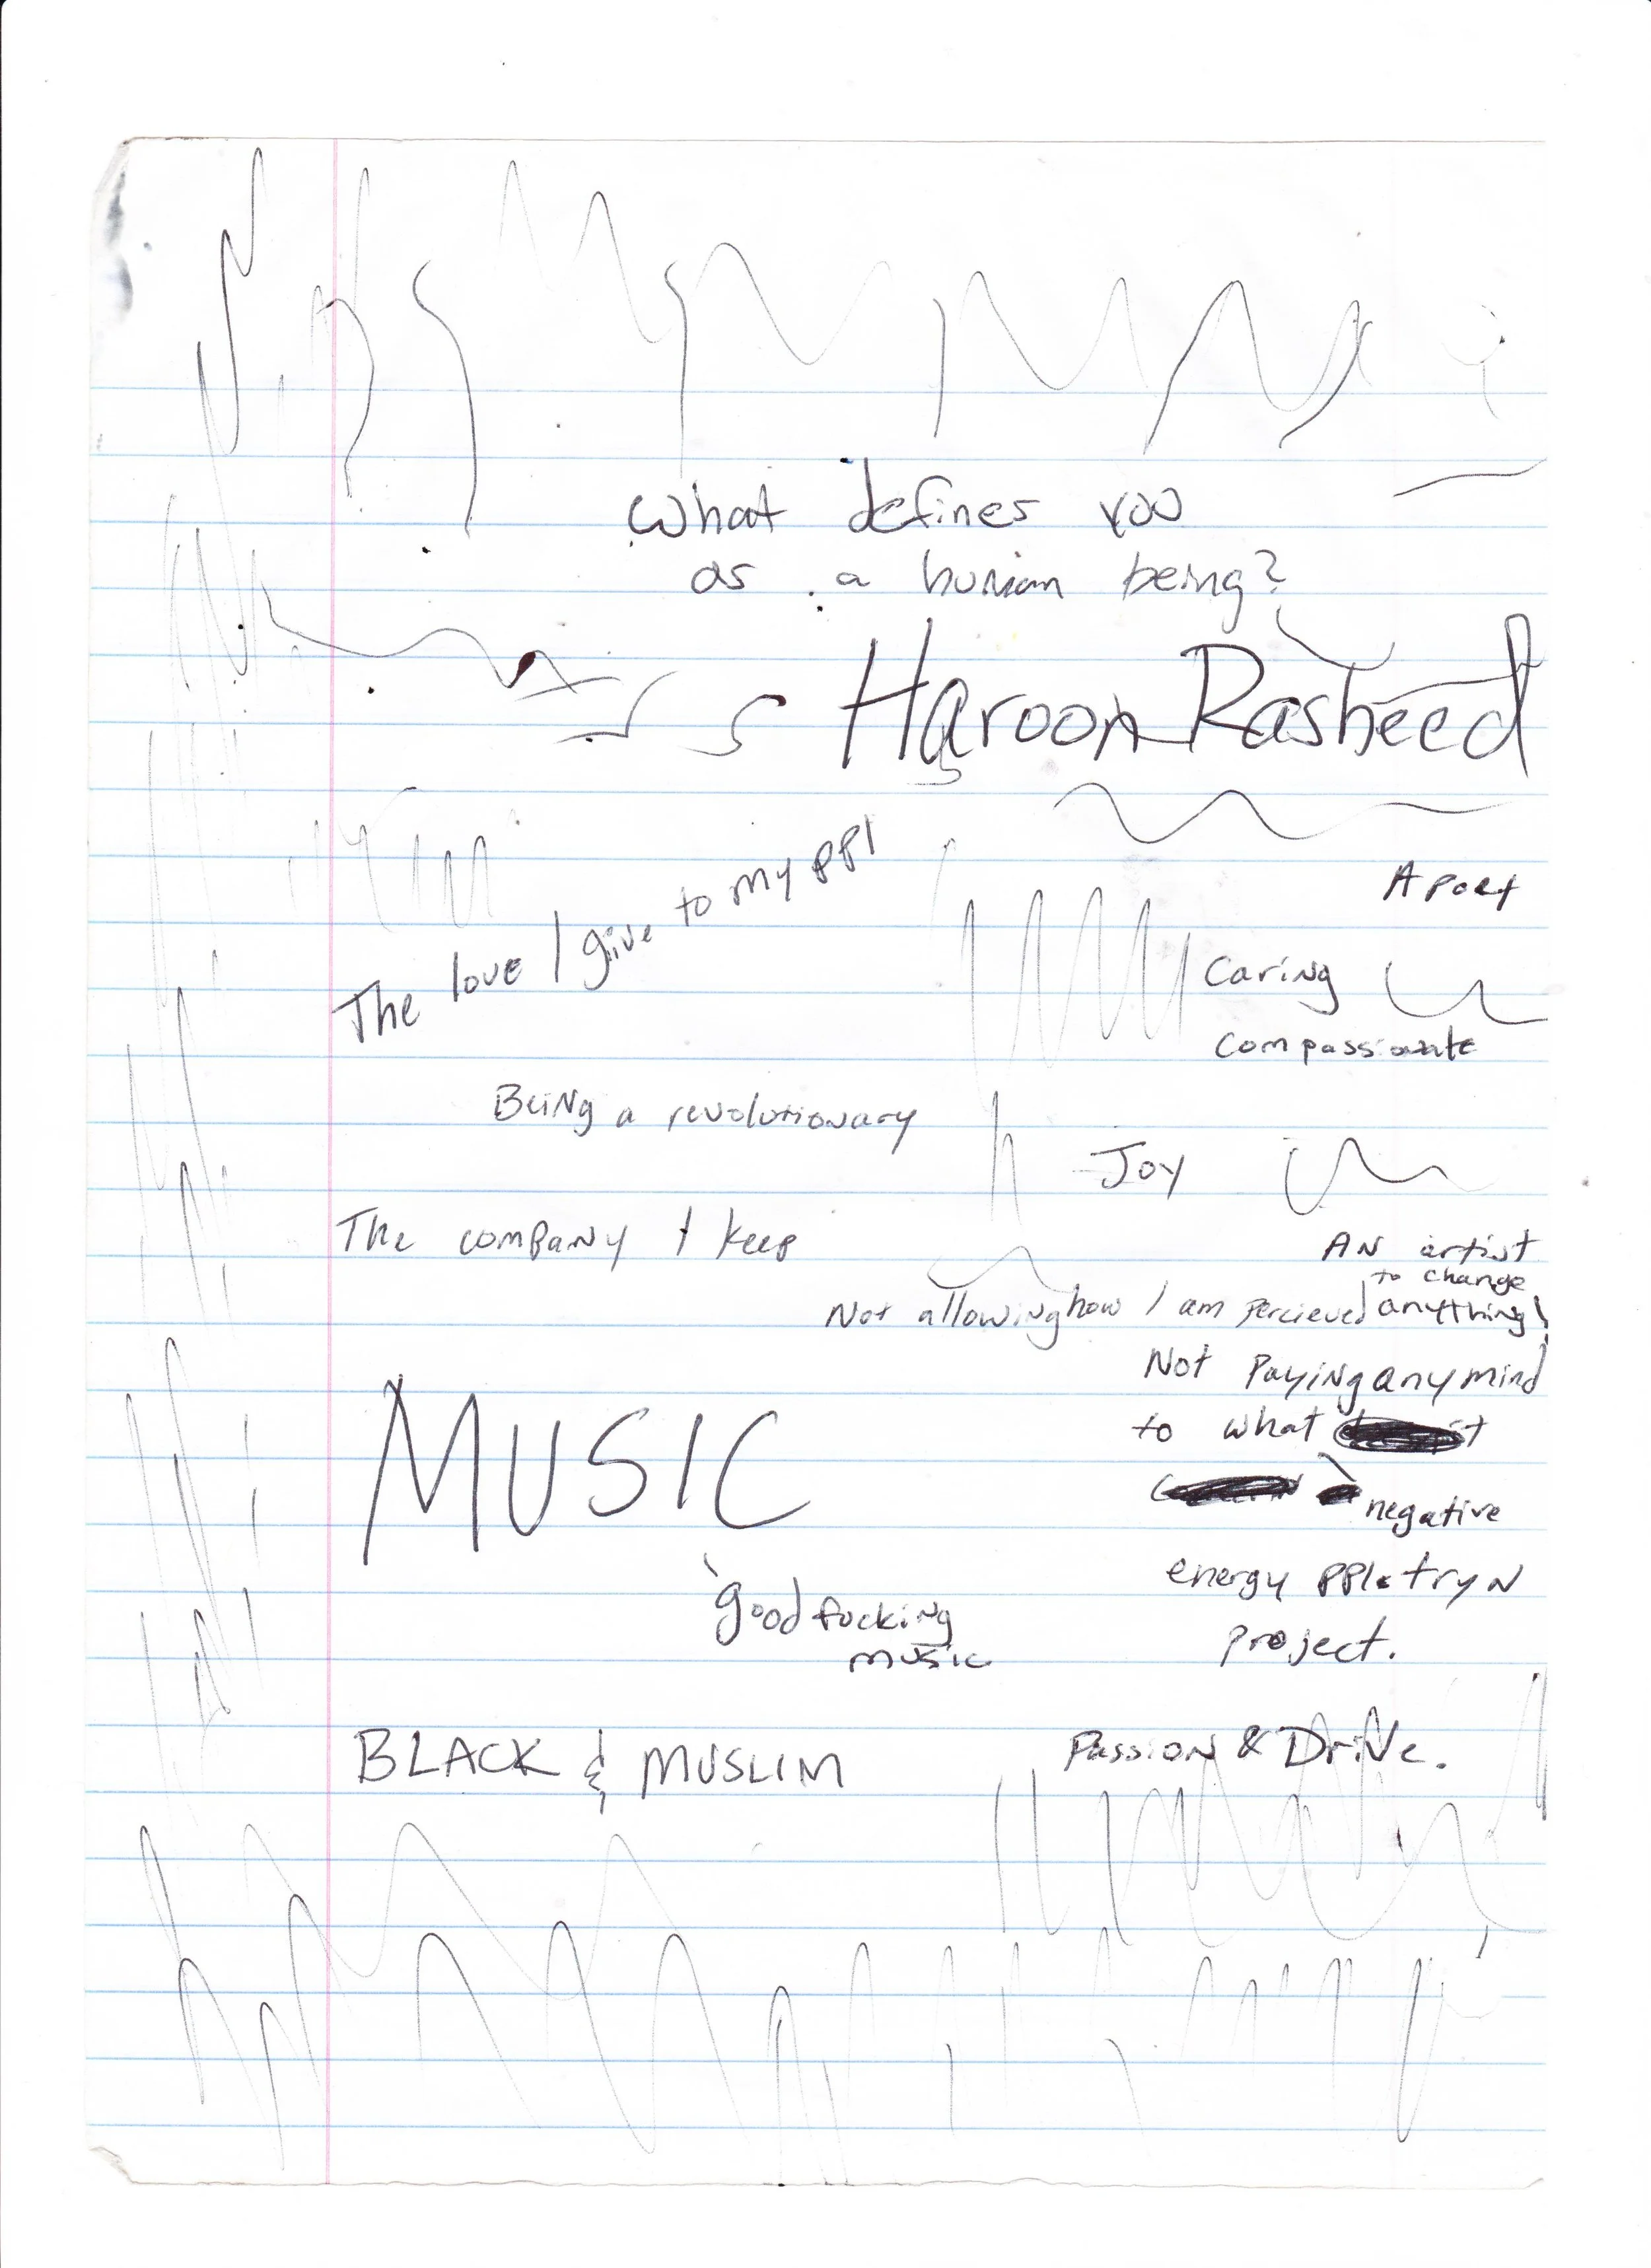 What defines you
as a human being?
Haroon Rasheed
The love I give to my ppl
A poet
Caring
Compassionate
Being a revolutionary
Joy
The company I keep
AN artist
Not allowing how I am percieved to change anything!
Not paying any mind
to what
negative
energy pple tryn
project.
MUSIC
good fucking
music
BLACK & MUSLIM
Passion & Drive.